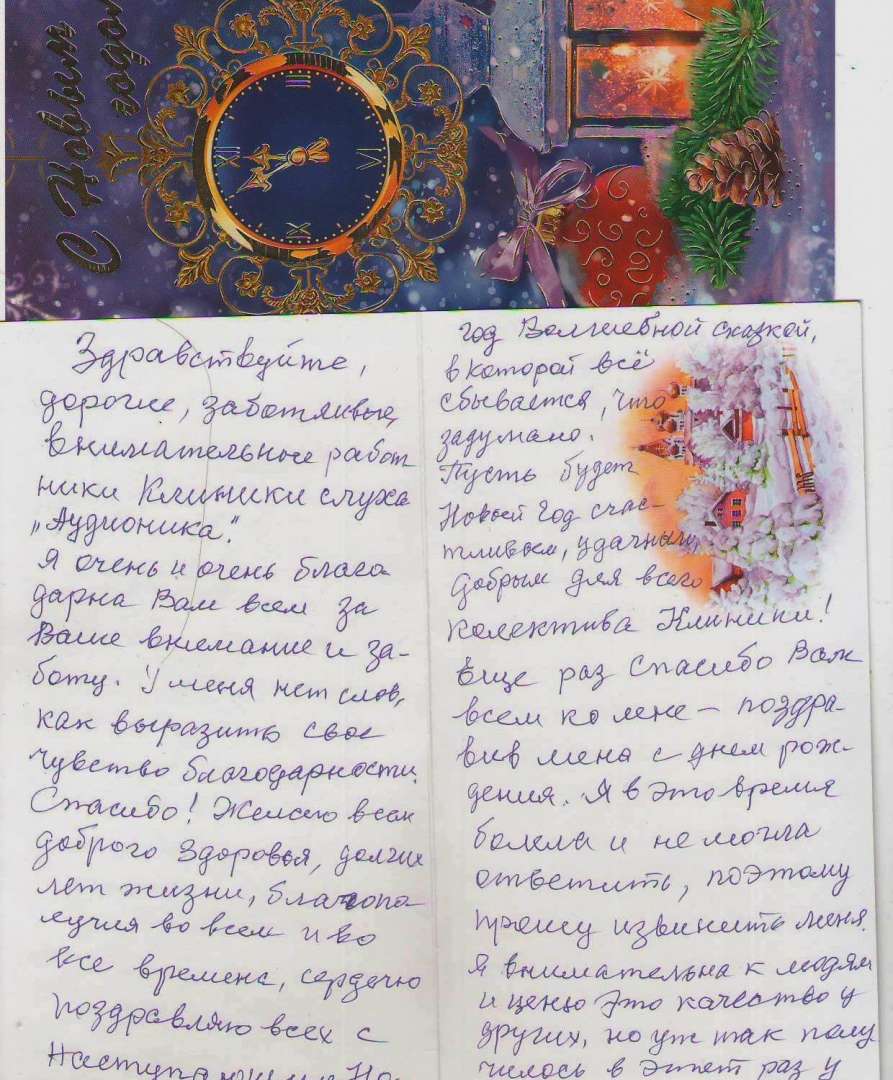 С Новым
годом
XII
III
VI
IX
Здравствуйте,
дорогие, заботливые,
внимательные работ
ники Клиники слуха
„Аудионика".
Я очень и очень благо
дарна Вам всем за
Ваше внимание и за-
боту. У меня нет слов,
как выразить свое
чувство благодарности.
Спасибо! Желаю всем
доброго здоровья, долгих
лет жизни, благопо
лучия во всем и во
все времена, сердечно
поздравляю всех с
Наступающим Но-
год Волшебной сказкой,
в которой всё
сбывается, что
задумано.
Пусть будет
Новый Год счас-
тливым, удачным,
добрым для всего
колектива Клиники!
Еще раз спасибо Вам
всем ко мне – поздра-
вив меня с днем рож-
дения. Я в это время
болела и не могла
ответить, поэтому
прошу извинить меня.
Я внимательна к людям
и ценю это качество у
других, но уж так полу
чилось в этот раз у